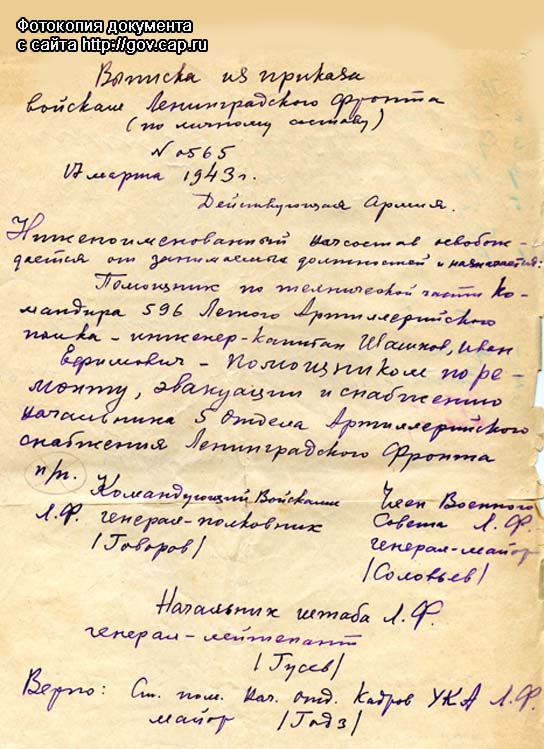 Фотокопия документа
с сайта http://gov.cap.ru
Выписка из приказа
войскам Ленинградского Фронта
(по личному составу)
№ 0565
17 марта 1943 г.
Действующая Армия.
Нижепоименованный начсостав освобож-
дается от занимаемых должностей и назначается:
Помощник по технической части Ко-
мандира 596 Легкого Артиллерийского
полка - инженер-капитан Шашков, Иван
Ефимович - помощником по ре-
монту, эвакуации и снабжению
начальника 5 отдела Артиллерийского
снабжения Ленинградского Фронта
п/п.
Командующий Войсками
Л.Ф. генерал-полковник
/Говоров/
Член Военного
Совета Л.Ф.
генерал-майор
/Соловьев/
Начальник штаба Л.Ф.
генерал-лейтенант
/Гусев/
Верно: Ст. пом. нач. отд. Кадров УКА Л.Ф.
майор /Годз/